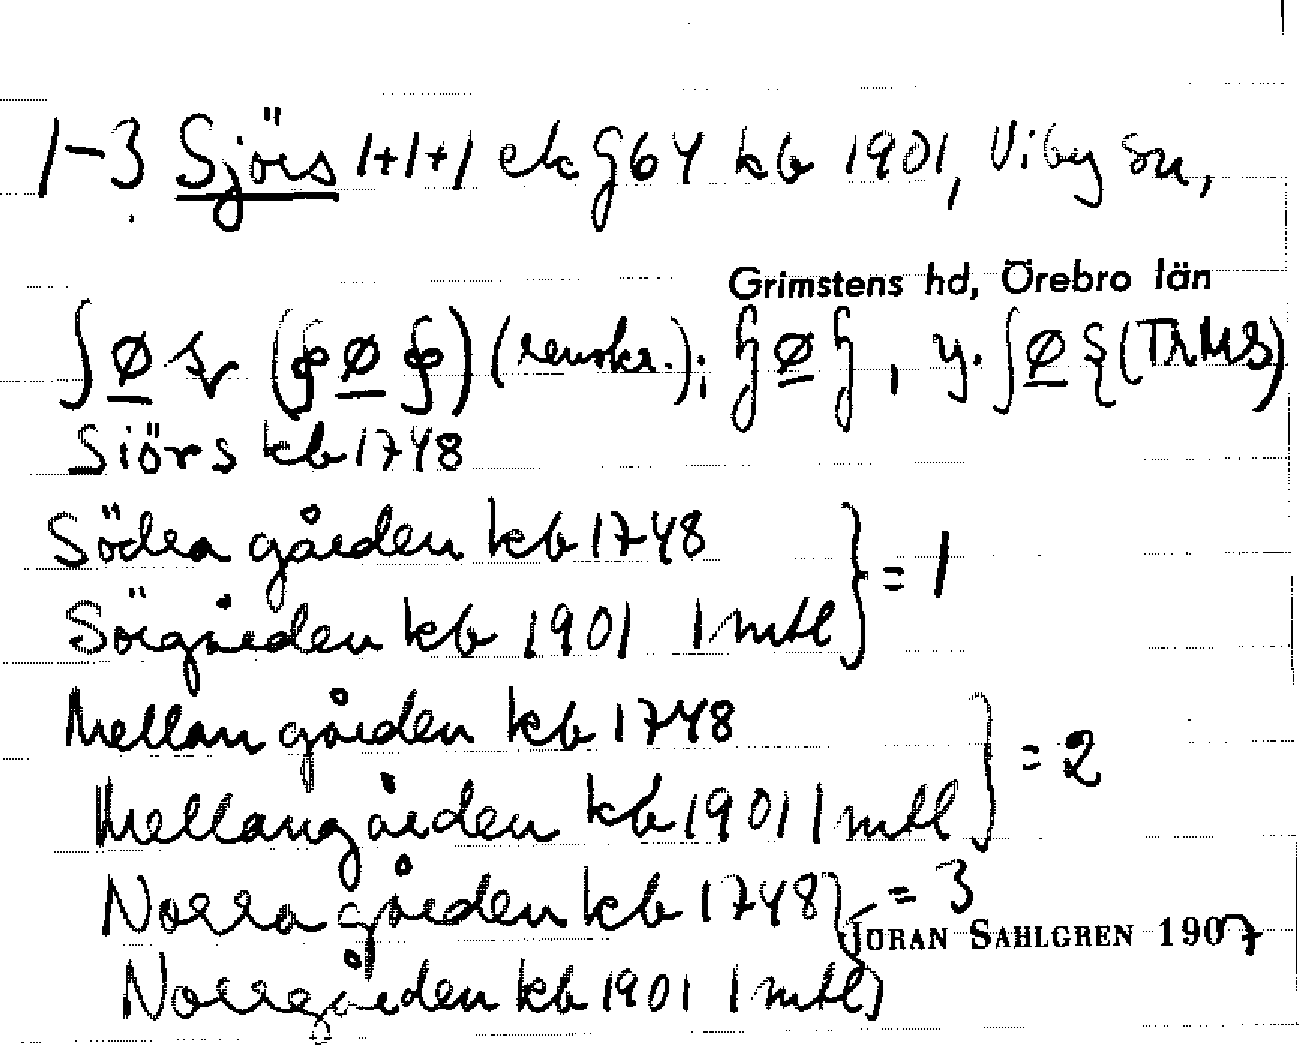 1-3 Sjörs 1+1+1 ek G64 kb 1901, Viby sn,
Grimstens hd, Örebro län
(renskr.);
Siörs kb 1748
Södra gården kb 1748
Sörgården kb 1901 1 mtl } = 1
Mellan gården kb 1748
Mellangården kb 1901 1 mtl } = 2
Norra gården kb 1748 } = 3
JÖRAN SAHLGREN 1907
Norrgården kb 1901 1 mtl